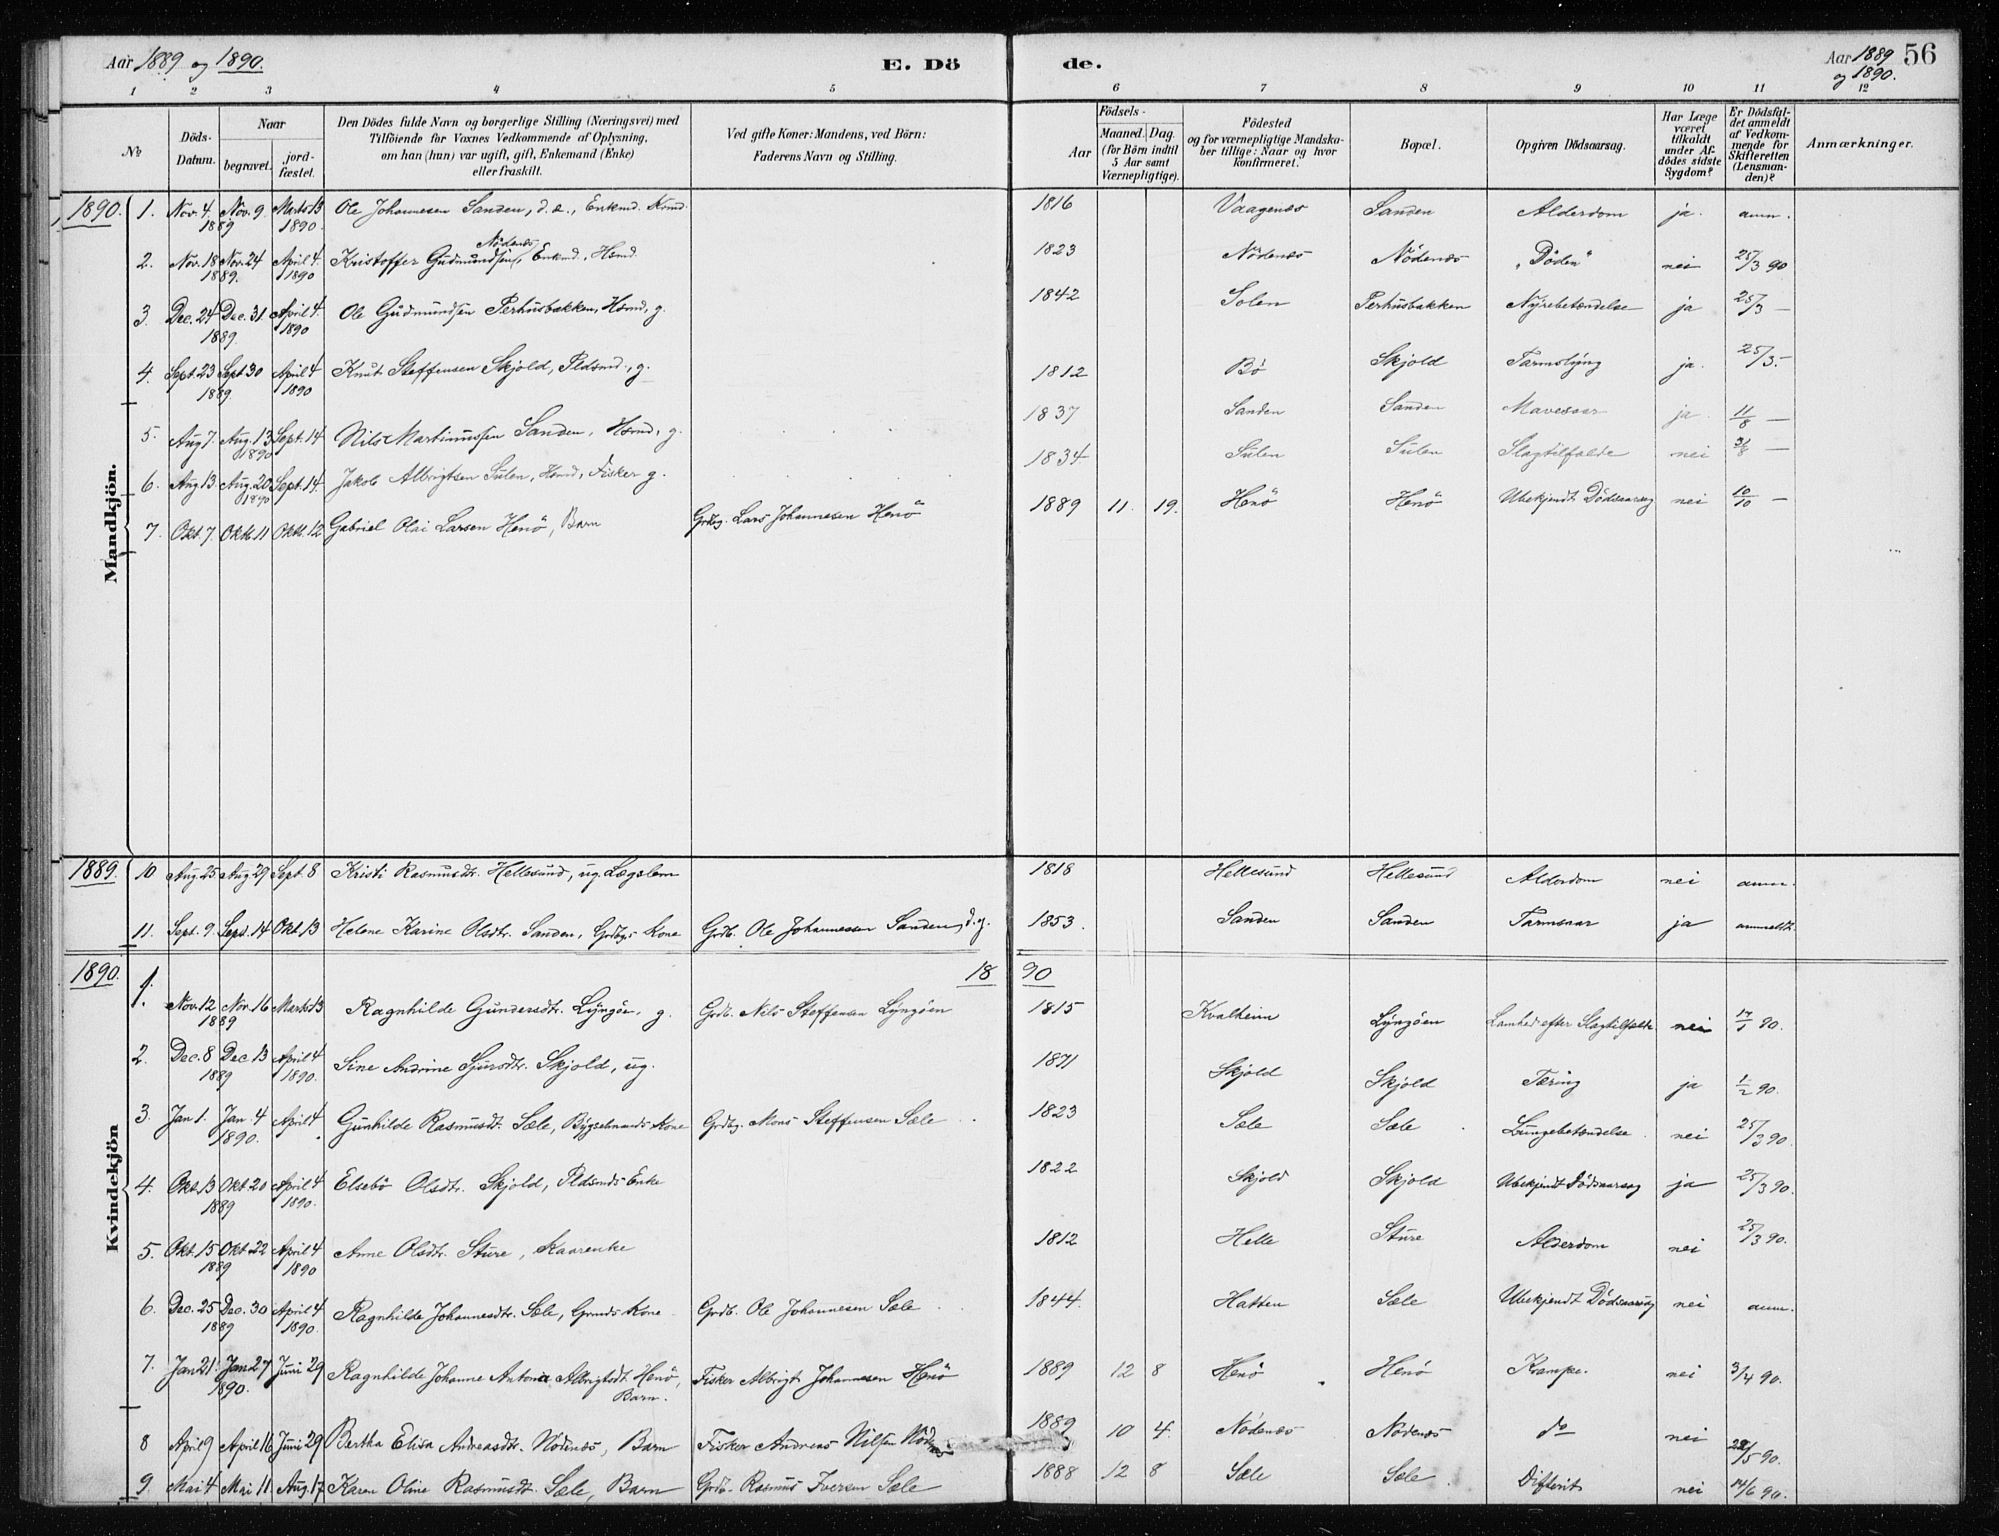 Aar 1889 og 1890. E. Dö de. Aar 1889 og 1890. 56
1 2 3 4 5 6 7 8 9 10 11 12
№ Döds-Datum. Naar begravet. jordfæstet. Den Dödes fulde Navn og borgerlige Stilling (Næringsvei) med Tilföiende for Voxnes Vedkommende af Oplysning, om han (hun) var ugift, gift, Enkemand (Enke) eller fraskilt. Ved gifte Koner: Mandens, ved Börn: Faderens Navn og Stilling. Födsels- Aar Maaned. Dag. (for Börn indtil 5 Aar samt Værnepligtige). Födested og for værnepligtige Mandskaber tillige: Naar og hvor konfirmeret. Bopæl. Opgiven Dödsaarsag. Har Læge været tilkaldt under Afdödes sidste Sygdom? Er Dödsfaldet anmeldt af Vedkommende for Skifteretten (Lensmanden)? Anmærkninger.
Mandkjön.
1890. 1. Nov. 4. 1889 Nov. 9. Marts 13 1890. Ole Johannesen Sanden, d. æ., Enkmd. Krmd. 1816 Vaagenes Sanden Alderdom ja. anm.
2. Nov. 18 1889. Nov. 24 April 4. 1890 Kristoffer Gudmundsen Nødenæs, Enkmd., Hsmd. 1823 Nødenæs Nødenæs "Døden" nei 25/3 90
3. Dec. 24 1889. Dec. 31 April 4. 1890 Ole Gudmundsen Perhusbakken, Hsmd, g. 1842 Solen Perhusbakken Nyrebetændelse ja 25/3 —
4. Sept. 23 1889. Sept 30 April 4 1890 Knut Steffensen Skjold, Pldsmd., g. 1812 Bø Skjold Tarmslyng ja. 25/3 -
5. Aug 7. Aug. 13 1890 Sept. 14 Nils Martinussen Sanden, Hsmd, g. 1837 Sanden Sanden Mavesaar ja. 11/8 —
6. Aug 13. Aug. 20 1890 Sept. 14. Jakob Albrigtsen Sulen, Hsmd, Fisker g. 1834. Sulen Sulen Slagtilfælde nei —
7. Okt. 7. Okt. 11 Okt. 12 Gabriel Olai Larsen Henö, Barn Grdbg. Lars Johannesen Henö 1889 11. 19. Henö Henö Ubekjendt Dødsaarsag nei 10/10 —
Kvindekjön
1889. 10 Aug. 25 Aug 29 Sept. 8 Kristi Rasmusdtr. Hellesund, ug. Lægslem 1818 Hellesund Hellesund Alderdom nei anm.
11. Sept. 9. Sept. 14 Okt. 13 Helene Karine Olsdtr. Sanden, Grdbgs Kone Grdb. Ole Johannessen Sanden, d.y. 1853. Sanden Sanden Tarmsaar ja anmeldt.
1890. 18 90
1. Nov. 12 1889 Nov. 16 Marts 13 Ragnhilde Gundersdtr. Lyngøen, g. Grdb. Nils Steffensen Lyngøen 1815 Kvalheim Lyngøen Lamhed efter Slagtilfælde nei 17/1 90.
2. Dec. 8 1889 Dec. 13 April 4 1890. Sine Andrine Sjursdtr. Skjold, ug. 1871 Skjold Skjold Tæring ja 1/2 90.
3. Jan 1. Jan. 4 1890. April 4 Gunhilde Rasmusdt. Sæle, Bygselmands Kone Grdbg. Mons Steffensen Sæle 1823 Sæle Sæle Lungebetændelse nei 25/3 90.
4. Okt. 13 1889 Okt. 20 April 4 1890. Elsebø Olsdtr. Skjold, Pldsmds Enke 1822 Skjold Skjold Ubekjendt Dødsaarsag ja 25/3 90.
5. Okt. 15 1889 Okt. 22 April 4 1890 Anne Olsdtr. Sture, Kaarenke 1812 Helle Sture Alderdom nei 25/3 90.
6. Dec. 25 1889 Dec. 30 April 4 1890. Ragnhilde Johannesdtr. Sæle, Grmds Kone Grdb. Ole Johannesen Sæle 1844. Hatten Sæle Ubekjendt Dødsaarsag nei anm.
7. Jan 21. Jan. 27 1890. Juni 29 Ragnhilde Johanne Antona Albrigtsdt. Henö, Barn. Fisker Albrigt Johannesen Henö 1889 12 8 Henö Henö Krampe. nei 3/4 90.
8 April 9 April 16 Juni 29 Bertha Elisa Andreasdtr. Nødenæs, Barn Fisker Andreas Nilsen Nødenæs 1889 10 4. Nødenæs Nødenæs do nei 22/5 90.
9. Mai 4 Mai 11 Aug. 17 Karen Oline Rasmusdt. Sæle, Barn Grdb. Rasmus Iversen Sæle 1888 12 8 Sæle Sæle Difterit nei 14/6 90.